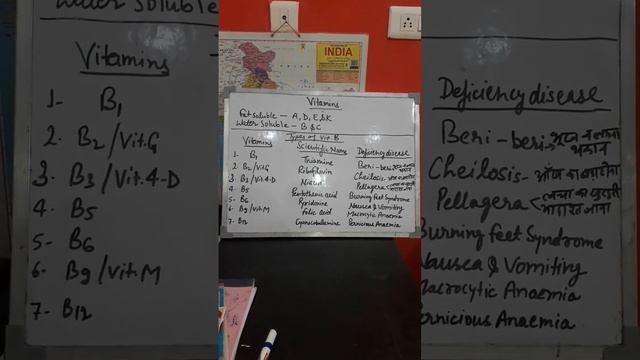 Water Soluble -
Vitamins
1- B1
2. B2/Vit.G
3. B3/Vit.4-D
4- B5
5- B6
6- B9/Vit.M
7- B12
INDIA
Vitamins
Fat soluble - A, D, E, & K
Water Soluble - B & C
Types of Vit-B
Vitamins Scientific Name Deficiency disease
1- B1 Thiamine Beri-beri
2. B2/Vit.G Riboflavin Cheilosis
3. B3/Vit.4-D Niacin Pellagera
4- B5 Pantothenic acid Burning feet Syndrome
5- B6 Pyridoxine Nausea & Vomiting
6- B9/Vit.M Folic acid Macrocytic Anaemia
7- B12 Cyanocobalamine Pernicious Anaemia
Deficiency disease
Beri-beri
Cheilosis
Pellagera
Burning feet Syndrome
Nausea & Vomiting
Macrocytic Anaemia
Pernicious Anaemia